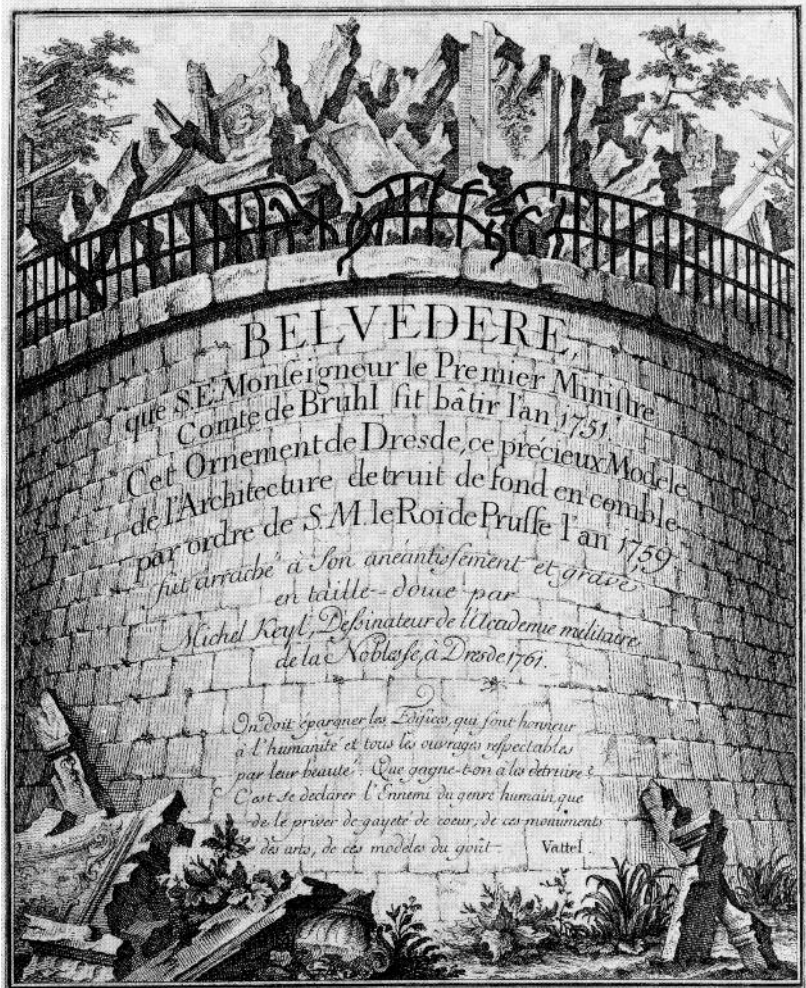 BELVEDERE,
que S.E. Monſeigneur le Premier Miniſtre
Comte de Bruhl fit bâtir l'an 1751.
Cet Ornement de Dresde, ce précieux Modele
de l'Architecture detruit de fond en comble
par ordre de S.M. le Roi de Pruſſe l'an 1759
fut arraché à Son anéantiſsement et gravé
en taille-douce par
Michel Keyl, Deſsinateur de l'Academie militaire
de la Nobleſse, à Dresde 1761.
On doit épargner les Edifices, qui font honneur
à l'humanité et tous les ouvrages reſpectables
par leur beauté. Que gagne-t-on à les detruire?
C'est se declarer l'Ennemi du genre humain, que
de le priver de gayeté de coeur, de ces monuments
des arts, de ces modéles du goût. Vattel.